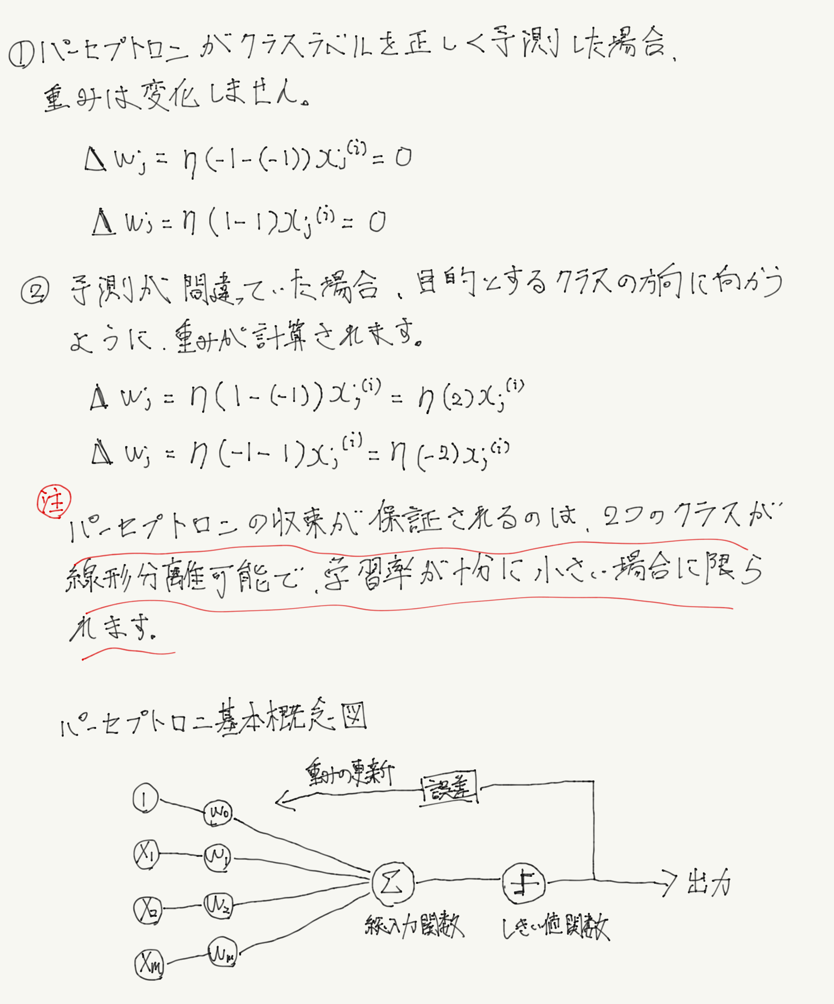 ①パーセプトロンがクラスラベルを正しく予測した場合、
重みは変化しません。
Δwj = η(-1-(-1))xj(i) = 0
Δwj = η(1-1)xj(i) = 0
② 予測が間違っていた場合、目的とするクラスの方向に向かう
ように、重みが計算されます。
Δwj = η(1-(-1))xj(i) = η(2)xj(i)
Δwj = η(-1-1)xj(i) = η(-2)xj(i)
注
パーセプトロンの収束が保証されるのは、2つのクラスが
線形分離可能で、学習率が十分に小さい場合に限ら
れます。
パーセプトロン基本概念図
重みの更新
誤差
1
w0
x1
w1
x2
w2
xm
wm
Σ
出力
総入力関数
しきい値関数